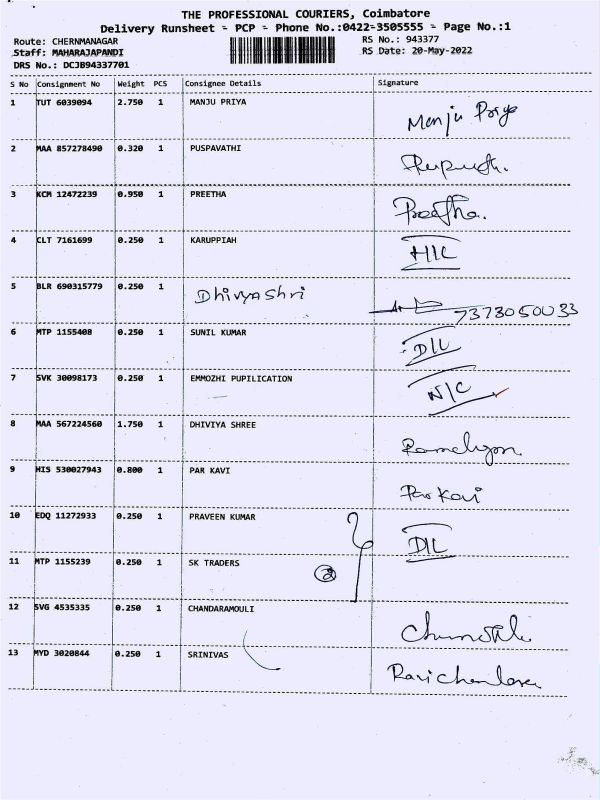 THE PROFESSIONAL COURIERS, Coimbatore
Delivery Runsheet - PCP - Phone No.:0422-3505555 - Page No.:1
Route: CHERNMANAGAR RS No.: 943377
Staff: MAHARAJAPANDI RS Date: 20-May-2022
DRS No.: DCJB94337701
S No Consignment No Weight PCS Consignee Details Signature
1 TUT 6039094 2.750 1 MANJU PRIYA Manju Priya
2 MAA 857278490 0.320 1 PUSPAVATHI
3 KCM 12472239 0.950 1 PREETHA Preetha.
4 CLT 7161699 0.250 1 KARUPPIAH
5 BLR 690315779 0.250 1 Dhivyashri 7373050033
6 MTP 1155408 0.250 1 SUNIL KUMAR D/L
7 SVK 30098173 0.250 1 EMMOZHI PUPILICATION N/C
8 MAA 567224560 1.750 1 DHIVIYA SHREE
9 HIS 530027943 0.800 1 PAR KAVI Par Kavi
10 EDQ 11272933 0.250 1 PRAVEEN KUMAR D/L
11 MTP 1155239 0.250 1 SK TRADERS 2
12 SVG 4535335 0.250 1 CHANDARAMOULI
13 MYD 3020844 0.250 1 SRINIVAS